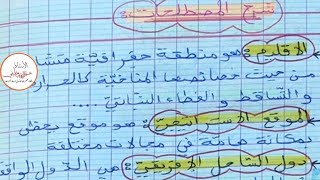 شرح المصطلحات:
الإقليم: هو منطقة جغرافية متشا
من حيث خصائصها المناخية كالحرارة
والتساقط و الغطاء النباتي ...
الموقع الاستراتيجي: هو موقع يحظى
بمكانة هامة في مجالات مختلفة
دول الساحل الإفريقي: هي الدول الواقع